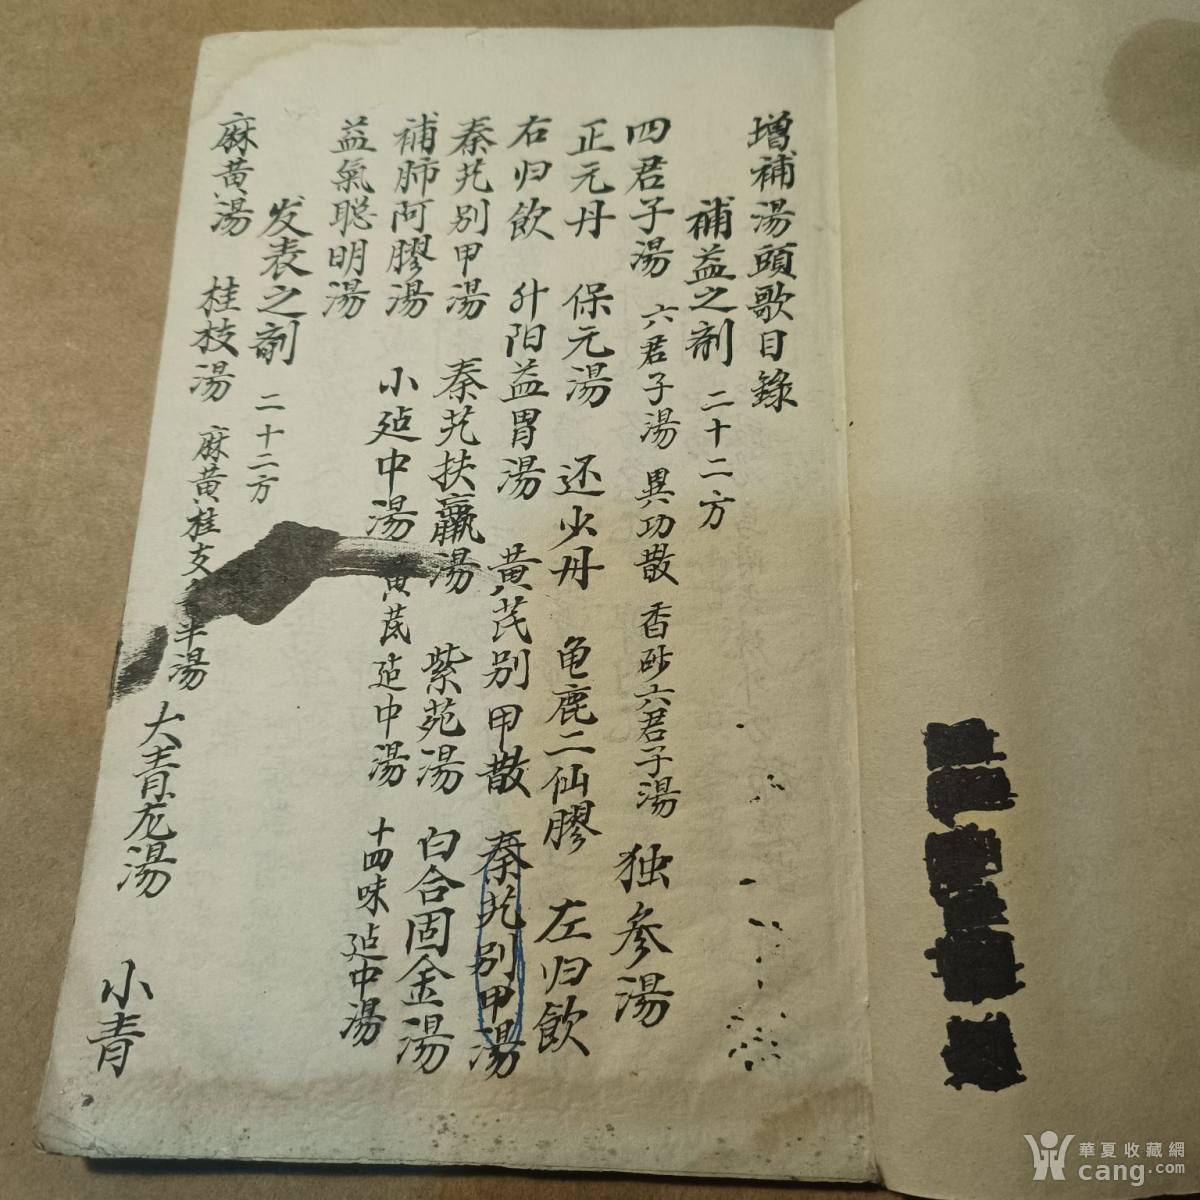 增補湯頭歌目錄
補益之剤 二十二方
四君子湯 六君子湯 異功散 香砂六君子湯 独參湯
正元丹 保元湯 还少丹 龟鹿二仙膠 左归飲
右归飲 升阳益胃湯 黄芪别甲散 秦艽别甲湯
秦艽别甲湯 秦艽扶羸湯 紫苑湯 白合固金湯
補肺阿膠湯 小建中湯 黄芪建中湯 十四味建中湯
益氣聪明湯
发表之剤 二十二方
麻黄湯 桂枝湯 麻黄桂支半湯 大青龙湯 小青
華夏收藏網
cang.com